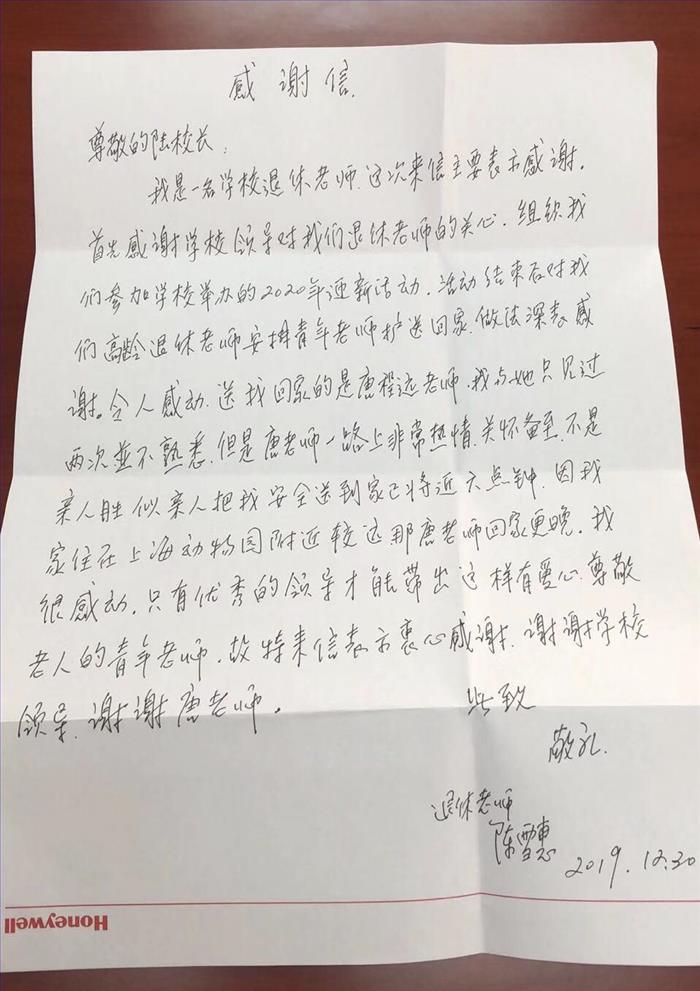 感谢信.
尊敬的陆校长:
我是一名学校退休老师.这次来信主要表示感谢.
首先感谢学校领导对我们退休老师的关心.组织我
们参加学校举办的2020年迎新活动.活动结束后对我
们高龄退休老师安排青年老师护送回家.做法深表感
谢。令人感动.送我回家的是唐程远老师.我与她只见过
两次並不熟悉.但是唐老师一路上非常热情.关怀备至.不是
亲人胜似亲人把我安全送到家已将近六点钟.因我
家住在上海动物园附近较远那唐老师回家更晚.我
很感动.只有优秀的领导才能带出这样有爱心.尊敬
老人的青年老师.故特来信表示衷心感谢.谢谢学校
领导.谢谢唐老师。
此致
敬礼.
退休老师
陈雪惠
2019.12.30
Honeywell